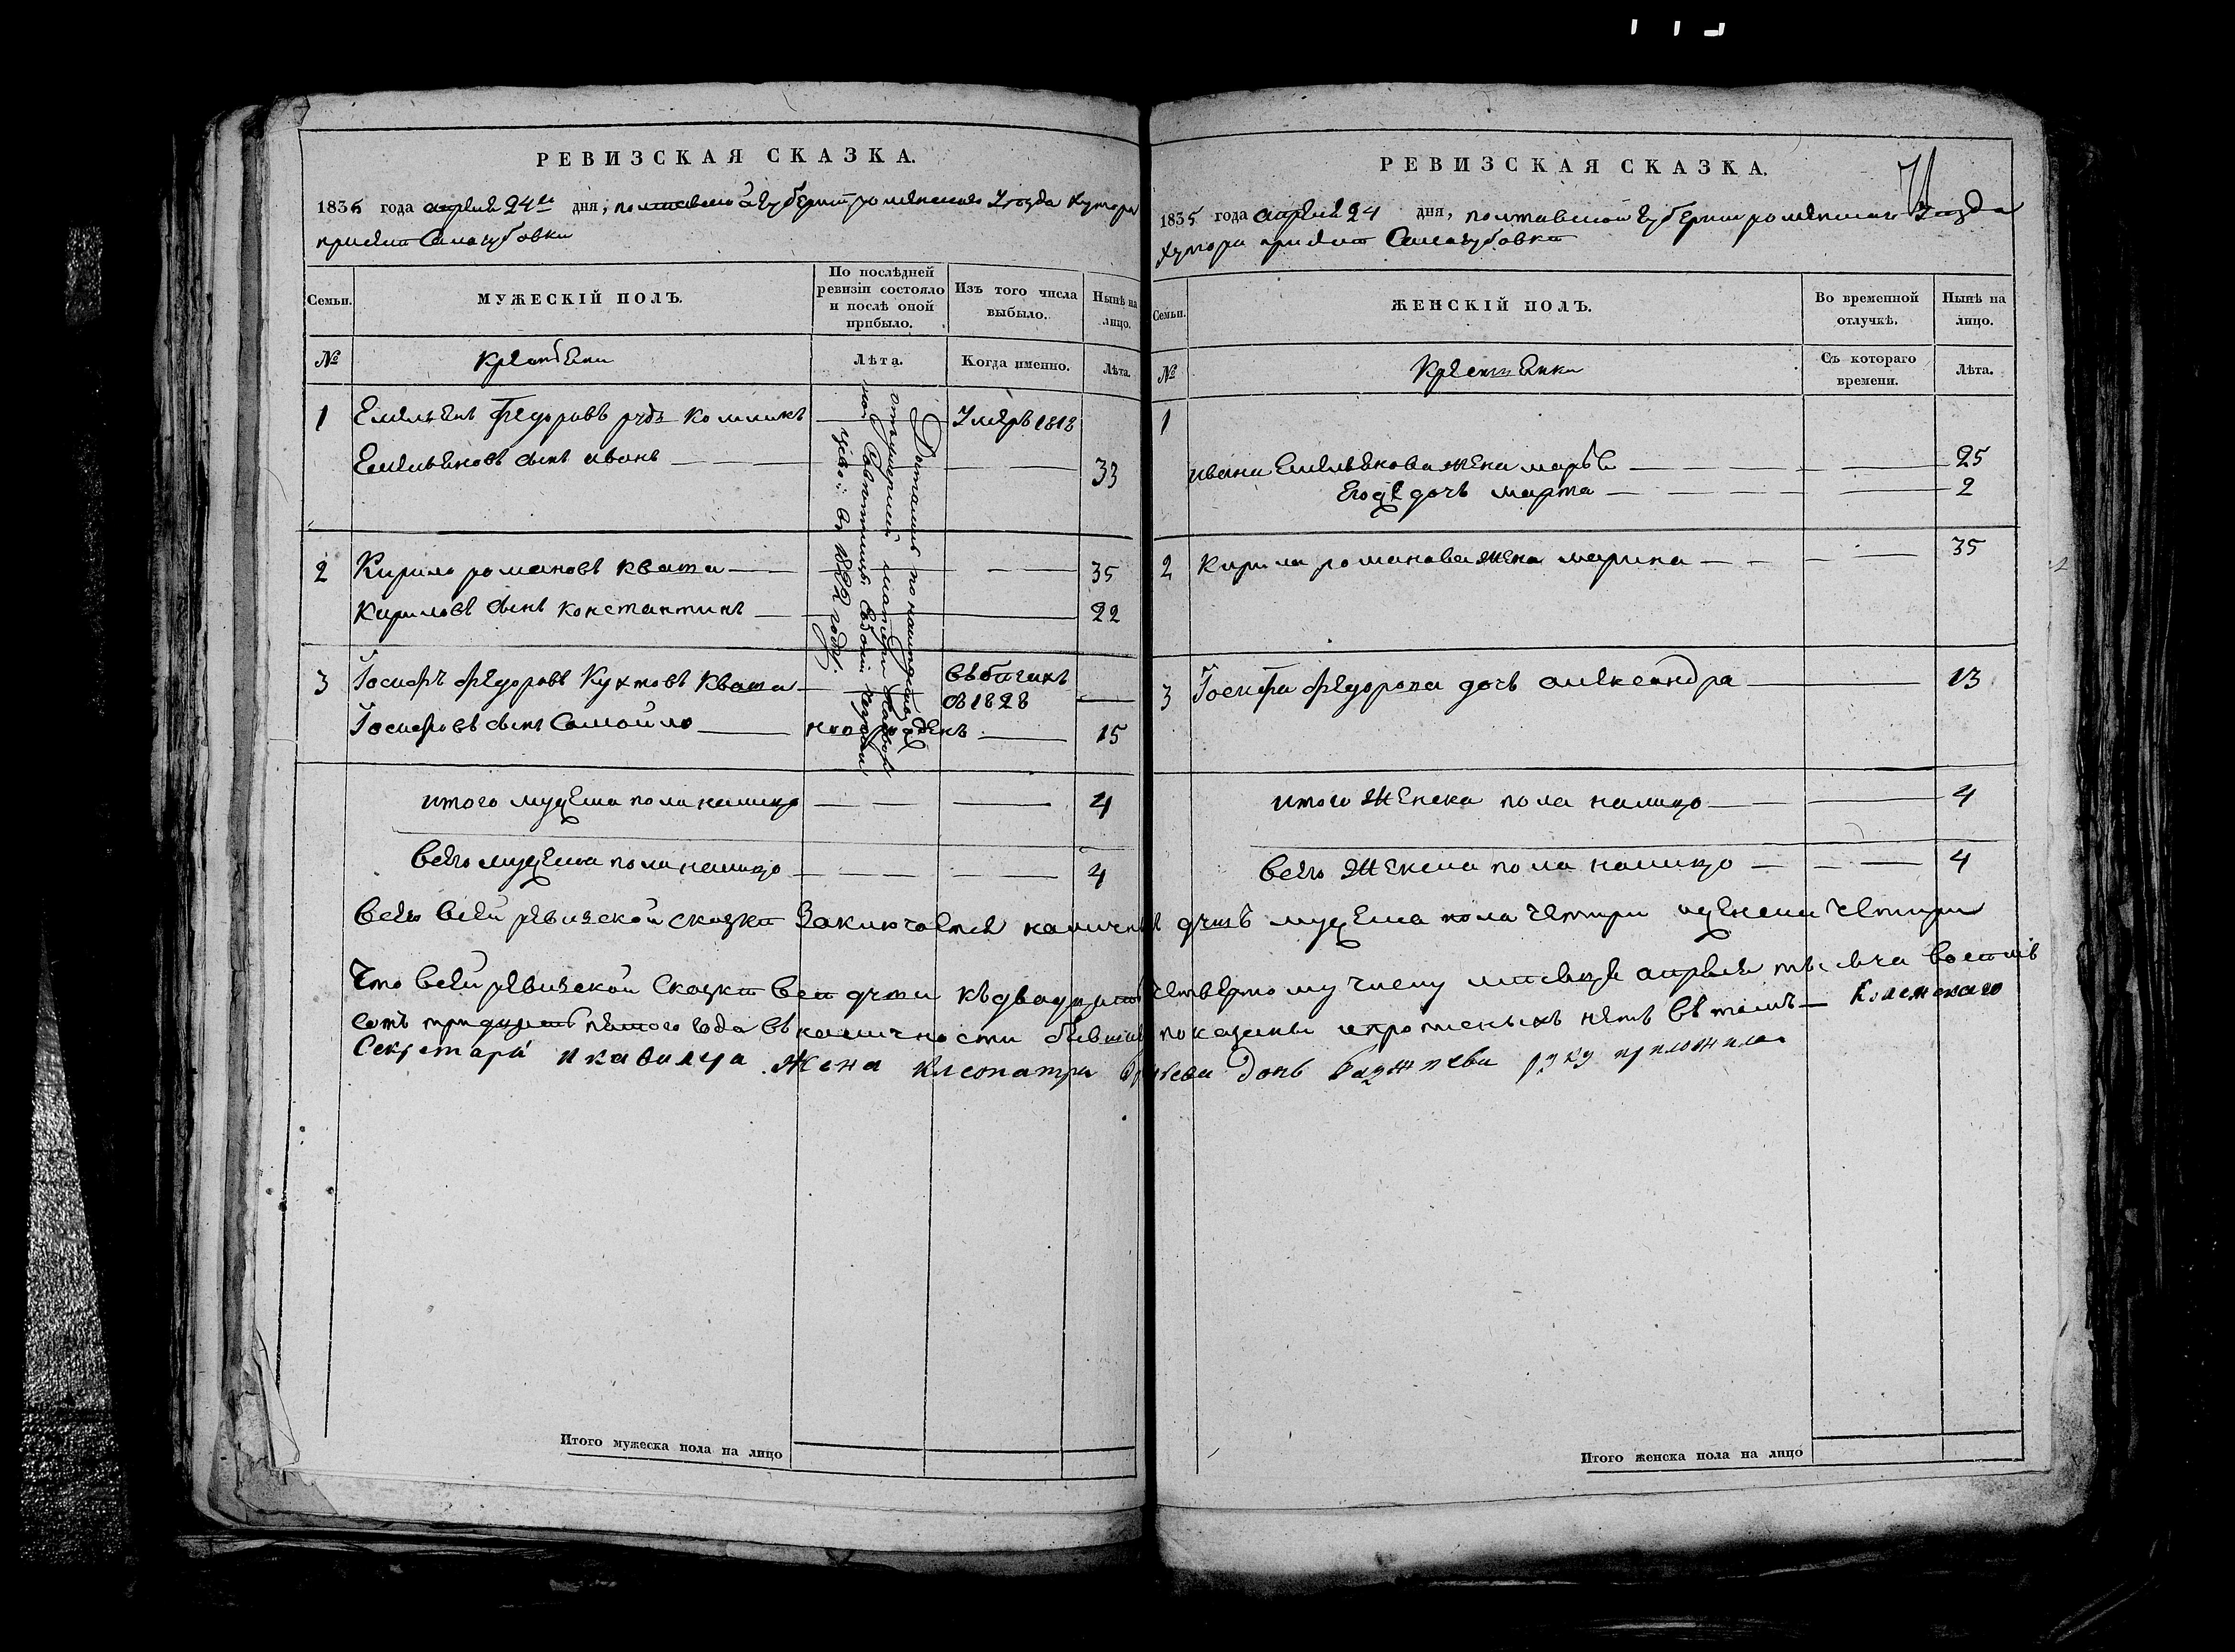 РЕВИЗСКАЯ СКАЗКА.
1835 года апреля 24го дня, полтавской губернии роменского уезда хутора
при селе Самагубовки
Семьи. МУЖЕСКІЙ ПОЛЪ. По послѣдней ревизіи состояло и послѣ оной прибыло. Изъ того числа выбыло. Нынѣ на лицо.
№ Крестьяни Лѣта. Когда именно. Лѣта.
1 Емельянъ Федоровъ Умеръ 1818
Емельяновъ сынъ иванъ 33
2 Кирило романовъ квата 35
Кириловъ сынъ константинъ 22
3 Іосифъ федоровъ Кухтовъ квата въ бегахъ
съ 1828
Іосифовъ сынъ Самойло новорожденъ 15
Достались по наследству
от умершей матери
въ 1822 году.
итого мужеска пола налицо 4
всего мужеска пола налицо 4
Итого мужеска пола на лицо
РЕВИЗСКАЯ СКАЗКА.
1835 года апреля 24 дня, полтавской губернии роменского уезда
хутора при селе Самагубовке
Семьи. ЖЕНСКІЙ ПОЛЪ. Во временной отлучкѣ. Нынѣ на лицо.
№ Крестьянки Съ котораго времени. Лѣта.
1
ивана Емельянова жена марья 25
Его же дочь марта 2
2 Кирила романова жена марина 35
3 Іосифа федорова дочь александра 13
итого женска пола налицо 4
всего женска пола налицо 4
всего в сей ревизской сказки заключается наличныхъ душъ мужеска пола четыри иженска четыри
Что в сей ревизской сказки все души къ двадцать четвертому числу месяца апреля тысяча восемь
сотъ тридцать пятого года въ наличности бывшие показаны и пропсеныхъ нетъ въ томъ
Секретаря жена Клеопатра дочь руку приложила
Итого женска пола на лицо